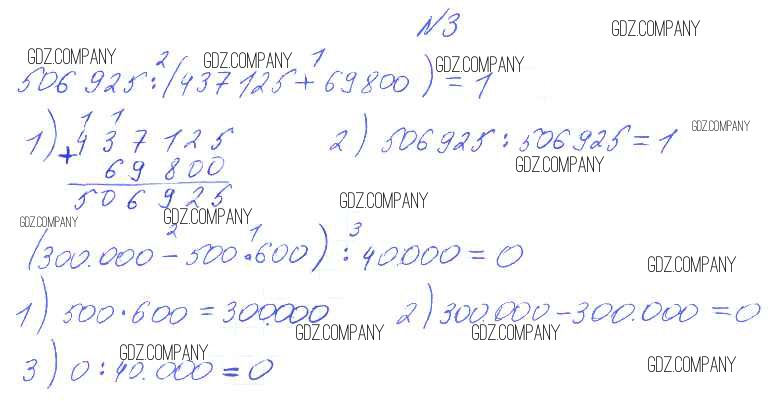 №3
GDZ.COMPANY
GDZ.COMPANY GDZ.COMPANY GDZ.COMPANY
2 1
506 925 : (437 125 + 69800) = 1
1 1
1) 437 125 2) 506 925 : 506 925 = 1 GDZ.COMPANY
+ 69 800 GDZ.COMPANY
506 925 GDZ.COMPANY
GDZ.COMPANY GDZ.COMPANY
2 1 3
(300.000 − 500 · 600) : 40.000 = 0
GDZ.COMPANY
1) 500 · 600 = 300.000 2) 300.000 − 300.000 = 0
GDZ.COMPANY GDZ.COMPANY
GDZ.COMPANY GDZ.COMPANY
3) 0 : 40.000 = 0